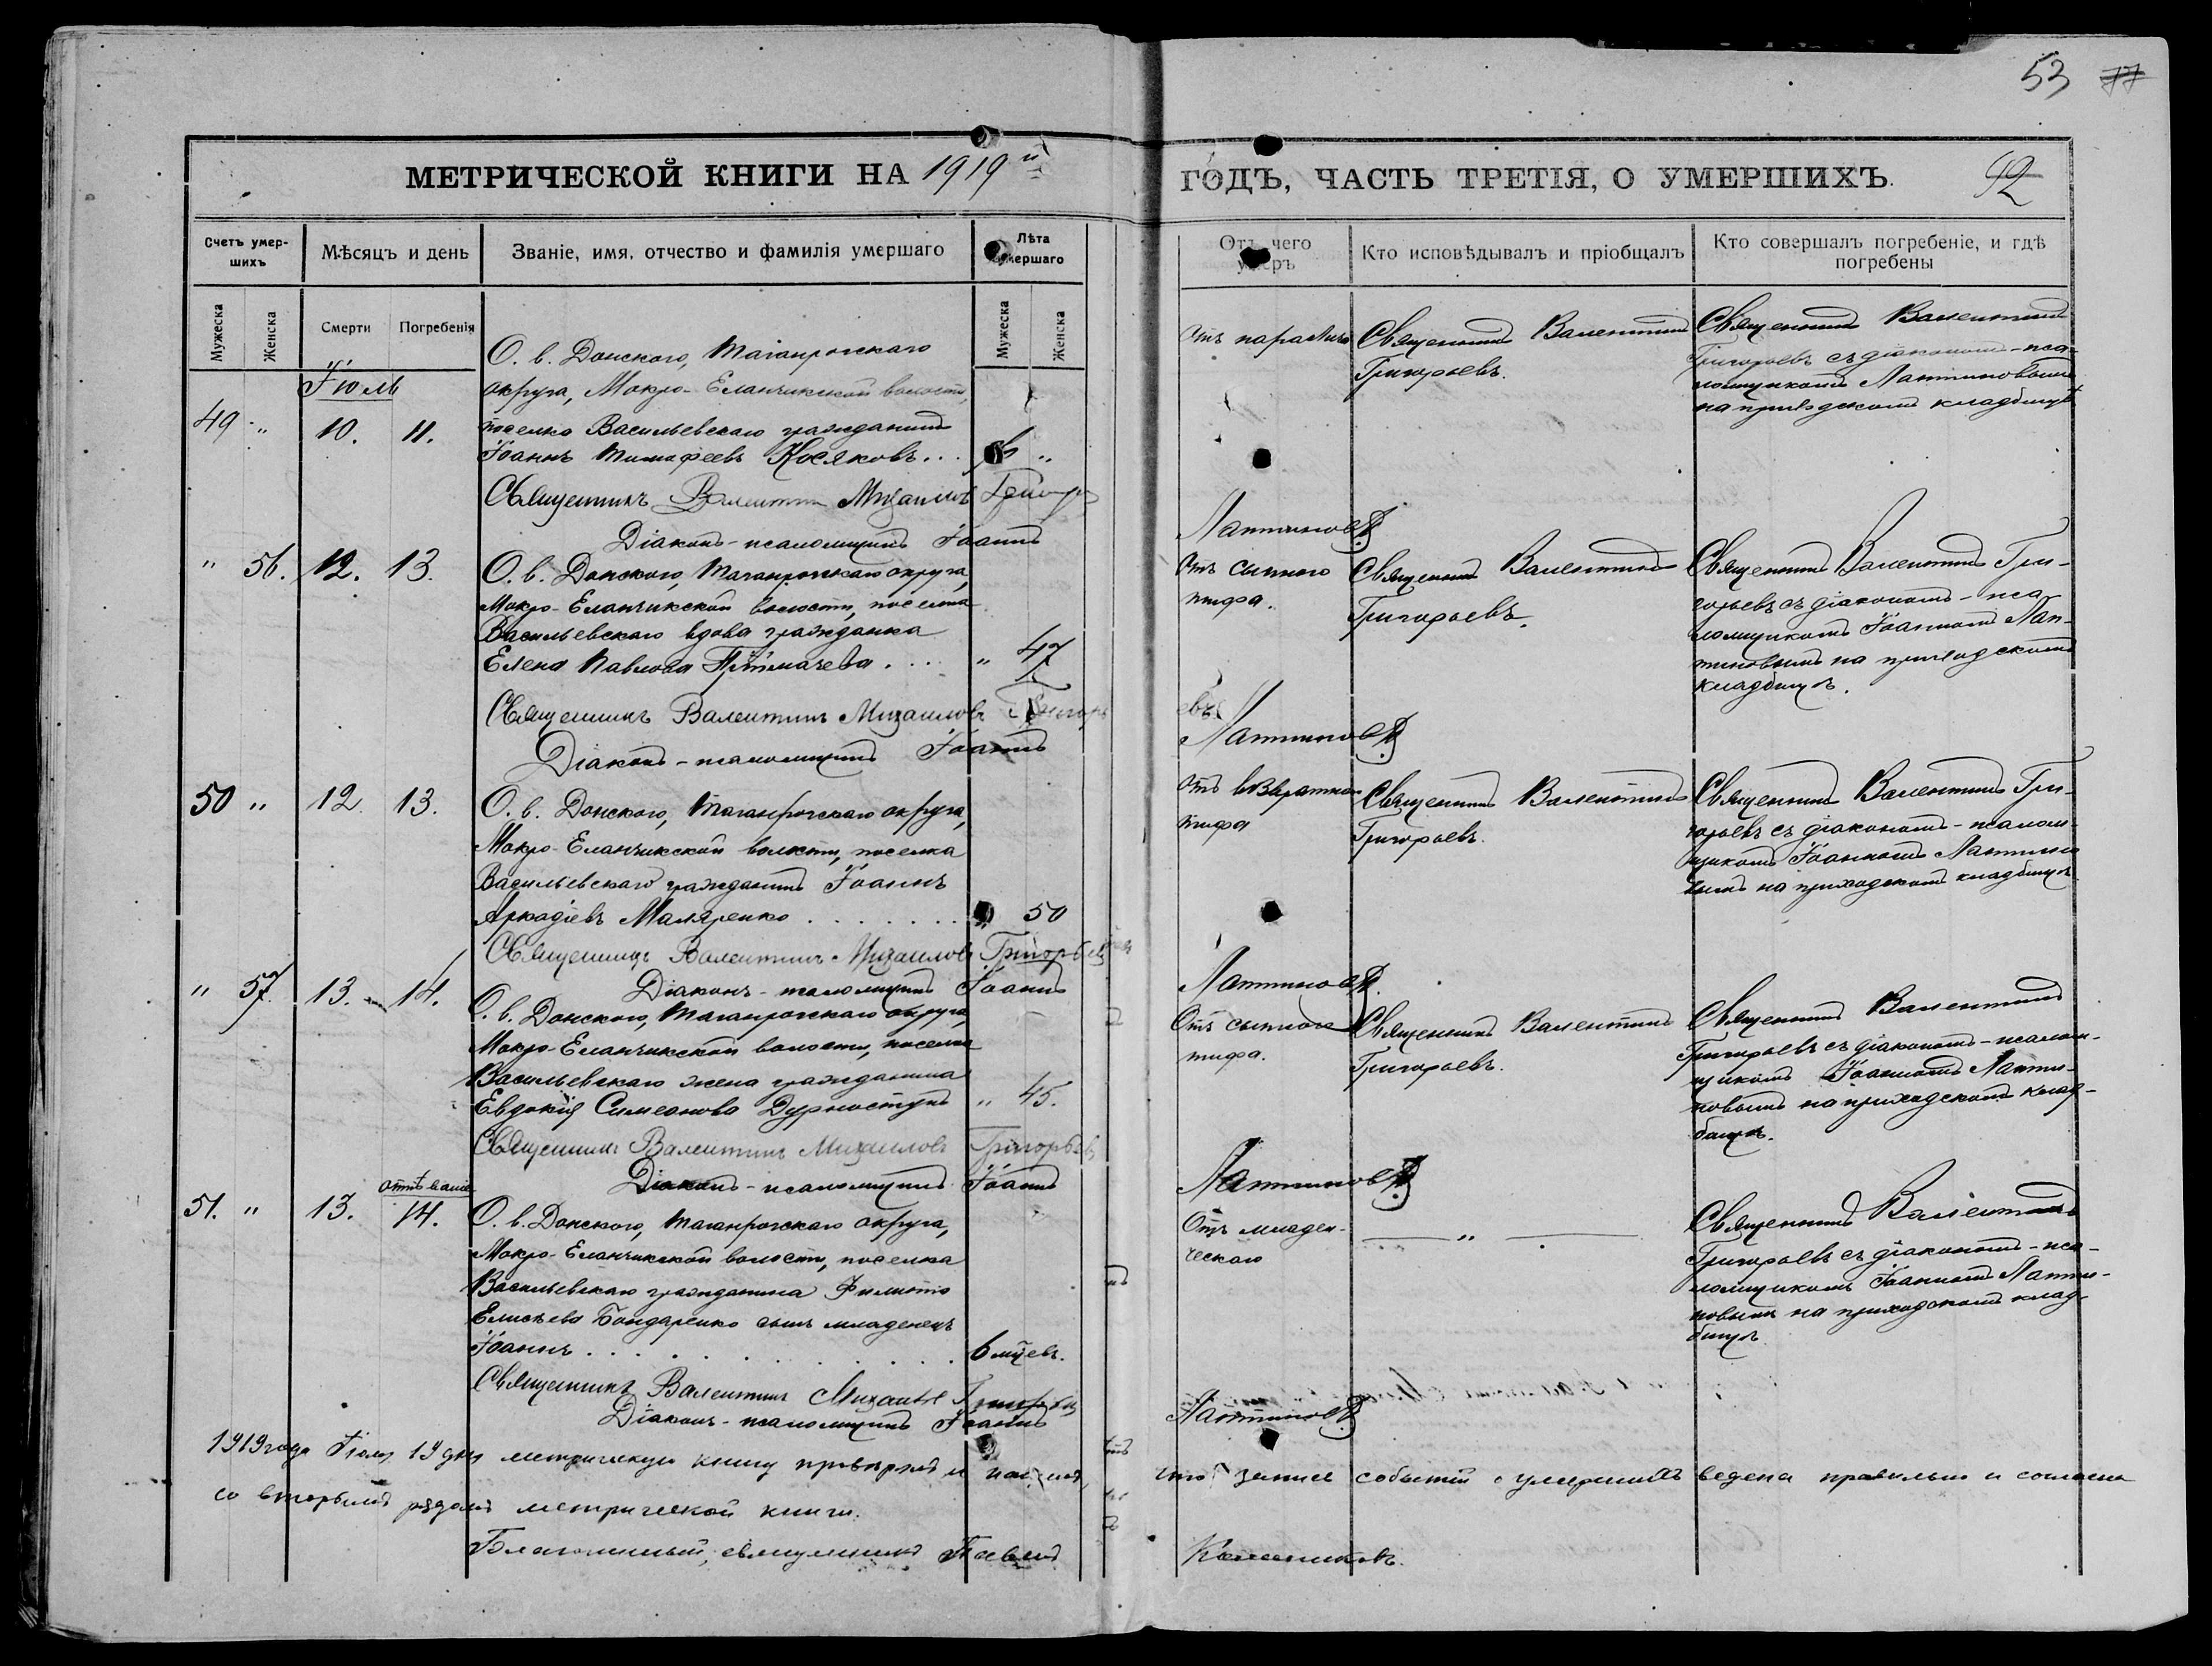 53 77
МЕТРИЧЕСКОЙ КНИГИ НА 1919й ГОДЪ, ЧАСТЬ ТРЕТІЯ, О УМЕРШИХЪ.
Счетъ умершихъ
Мѣсяцъ и день
Званіе, имя, отчество и фамилія умершаго
Лѣта умершаго
Отъ чего умеръ
Кто исповѣдывалъ и пріобщалъ
Кто совершалъ погребеніе, и гдѣ
погребены
Мужеска
Женска
Смерти
Погребенія
Мужеска
Женска
Іюль
49 "
10. 11.
О. в. Донского, Таганрогскаго
округа, Мокро-Еланчикской волости,
поселка Васильевскаго гражданинъ
Іоаннъ Тимофеевъ Косяковъ...
Отъ паралича
Священникъ Валентинъ
Григорьевъ.
Священникъ Валентинъ
Григорьевъ съ діакономъ-пса-
ломщикомъ Лаптиновымъ
на приходскомъ кладбищѣ
Священникъ Валентинъ Михаиловъ Григорь
Діаконъ-псаломщикъ Іоаннъ Лаптиновъ
" 56.
12. 13.
О. в. Донского, Таганрогскаго округа,
Мокро-Еланчикской волости, поселка
Васильевскаго вдова гражданка
Елена Павлова Примачева.... " 47
Отъ сыпного
тифа.
Священникъ Валентинъ
Григорьевъ.
Священникъ Валентинъ Гри-
горьевъ съ діакономъ-пса
ломщикомъ Іоанномъ Лап-
тиновымъ на приходскомъ
кладбищѣ.
Священникъ Валентинъ Михаиловъ Григорь евъ
Діаконъ-псаломщикъ Іоаннъ Лаптиновъ
50 "
12. 13.
О. в. Донского, Таганрогскаго округа,
Мокро-Еланчикской волости, поселка
Васильевскаго гражданинъ Іоаннъ
Аркадіевъ Маляренко....... 50
Отъ возвратнаго
тифа
Священникъ Валентинъ
Григорьевъ.
Священникъ Валентинъ Гри-
горьевъ съ діакономъ-псалом-
щикомъ Іоанномъ Лаптино
вымъ на приходскомъ кладбищѣ
Священникъ Валентинъ Михаиловъ Григорьевъ
Діаконъ-псаломщикъ Іоаннъ Лаптиновъ.
" 57.
13. 14.
О. в. Донского, Таганрогскаго округа,
Мокро-Еланчикской волости, поселка
Васильевскаго жена гражданина
Евдокія Симеонова Дурноступъ " 45.
Отъ сыпного
тифа.
Священникъ Валентинъ
Григорьевъ.
Священникъ Валентинъ
Григорьевъ съ діакономъ-псалом-
щикомъ Іоанномъ Лапти-
новымъ на приходскомъ клад-
бищѣ.
Священникъ Валентинъ Михаиловъ Григорьевъ
Діаконъ-псаломщикъ Іоаннъ Лаптиновъ
51. "
13. отпѣваніе 14.
О. в. Донского, Таганрогскаго округа,
Мокро-Еланчикской волости, поселка
Васильевскаго гражданина Филиппа
Елисѣева Бондаренко сынъ младенецъ
Іоаннъ............. 6 мцевъ.
Отъ младен-
ческаго
"
Священникъ Валентинъ
Григорьевъ съ діакономъ-пса-
ломщикомъ Іоанномъ Лапти-
новымъ на приходскомъ клад-
бищѣ
Священникъ Валентинъ Михаиловъ Григорьевъ
Діаконъ-псаломщикъ Іоаннъ Лаптиновъ
1919 года Іюля 19 дня метрическую книгу провѣрялъ и нашелъ, что запись событій о умершихъ ведена правильно и согласна
со вторымъ рядомъ метрической книги.
Благочинный, священникъ Павелъ